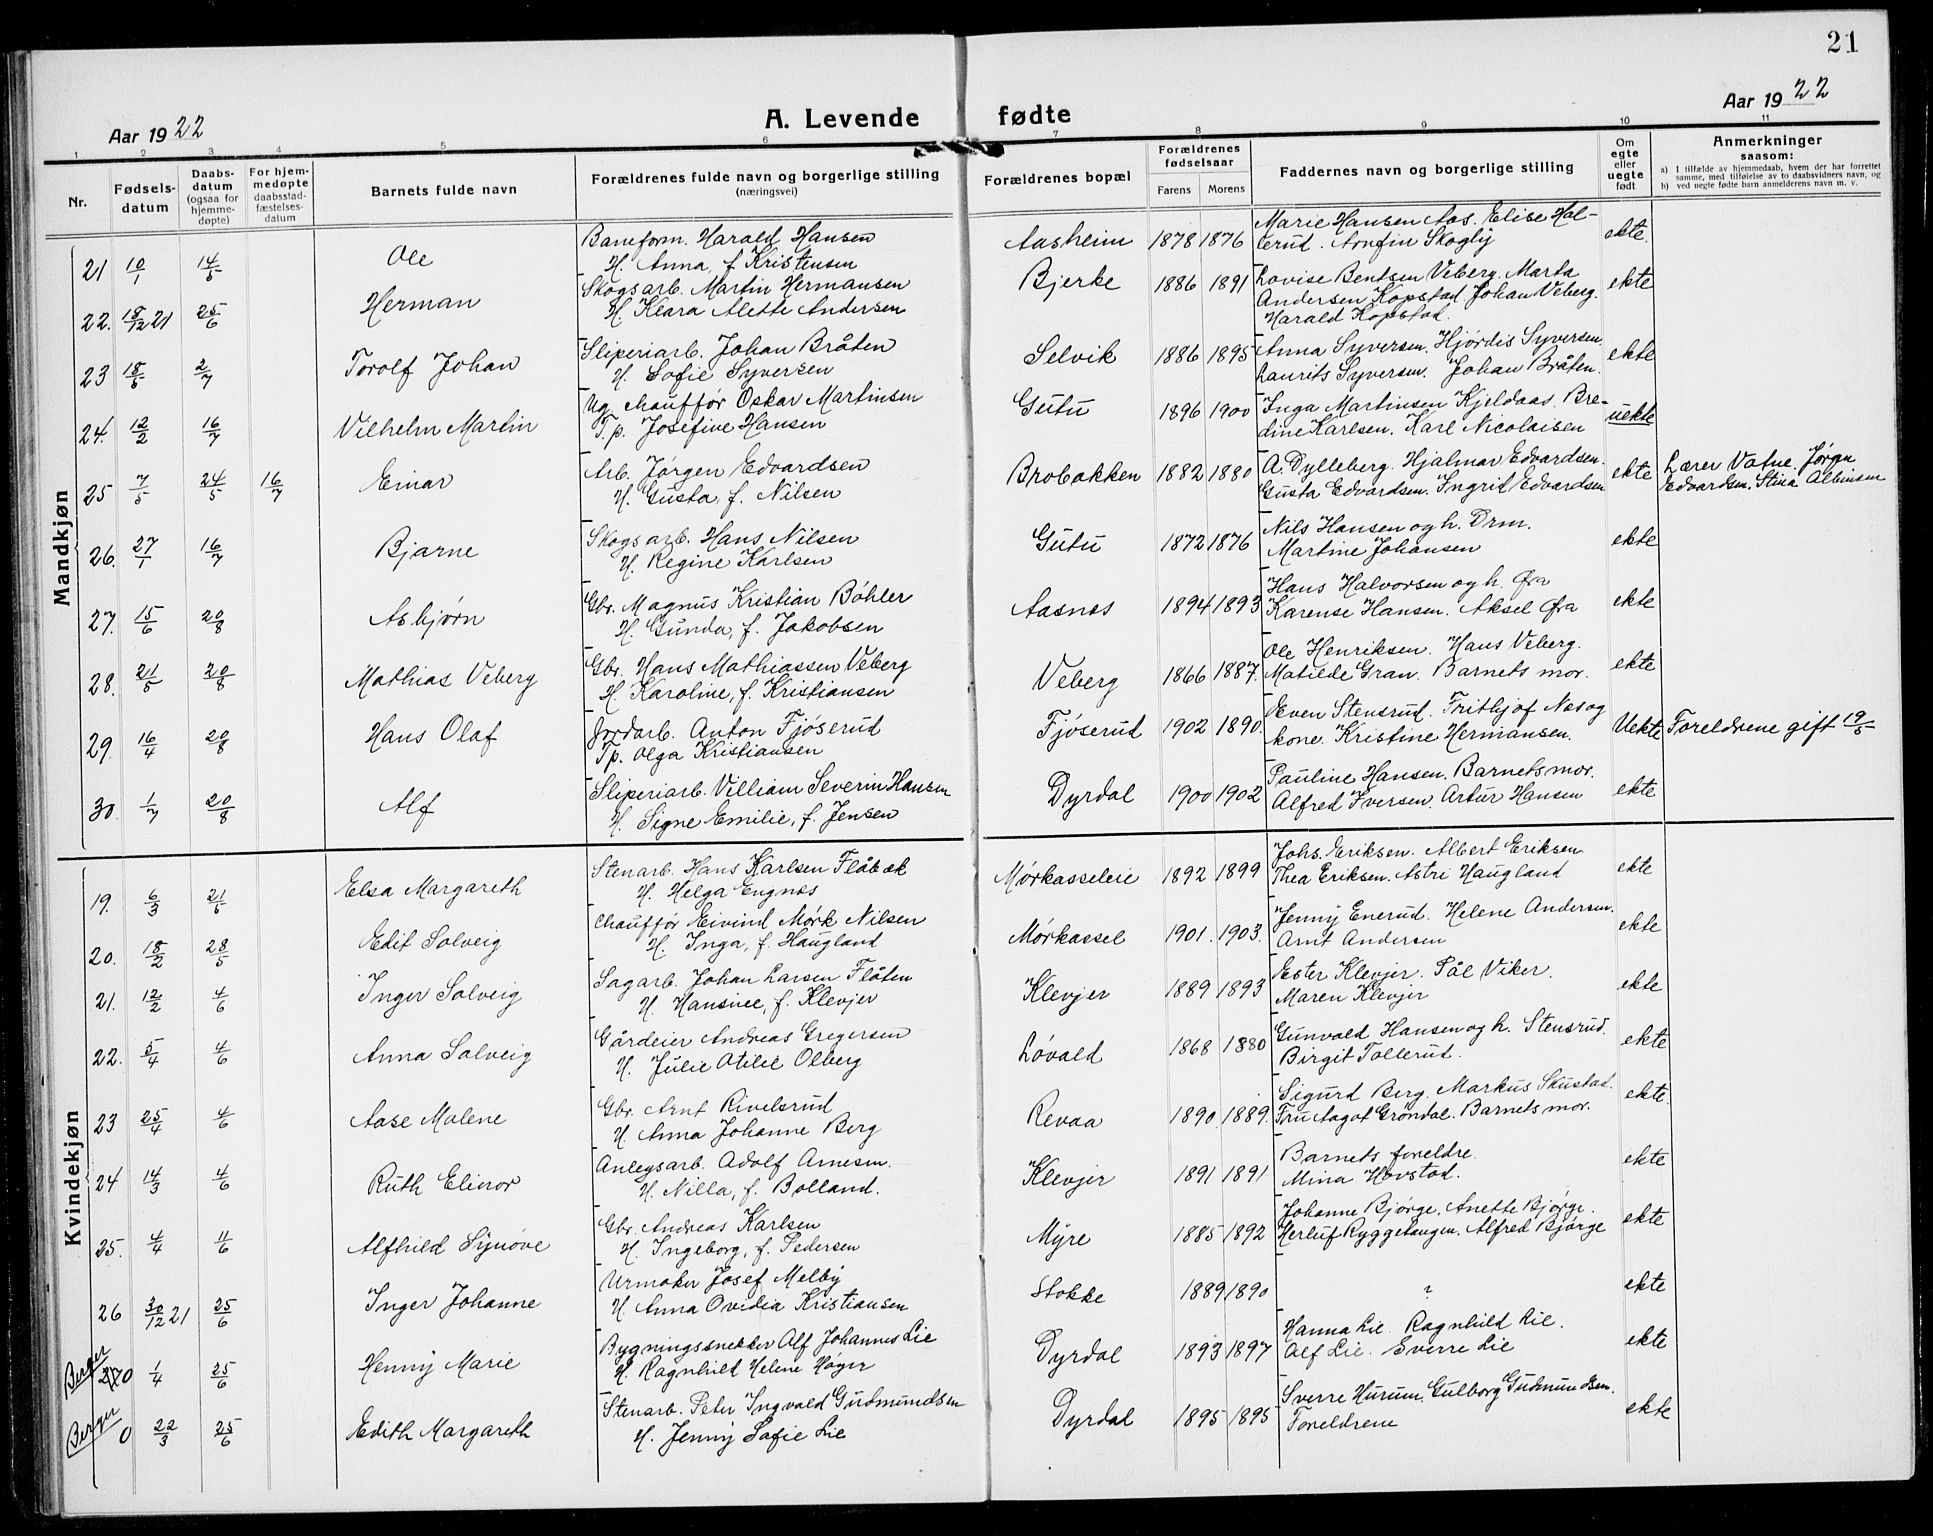 21
Aar 1922
A. Levende fødte
Aar 1922
1 2 3 4 5 6 7 8 9 10 11
Nr.
Fødselsdatum
Daabsdatum (ogsaa for hjemmedøpte)
For hjemmedøpte daabsstadfæstelsesdatum
Barnets fulde navn
Forældrenes fulde navn og borgerlige stilling (næringsvei)
Forældrenes bopæl
Forældrenes fødselsaar
Farens Morens
Faddernes navn og borgerlige stilling
Om egte eller uegte født
Anmerkninger saasom:
a) I tilfælde av hjemmedaab, hvem der har forrettet samme, med tilføielse av to daabsvidners navn, og
b) ved uegte fødte barn anmelderens navn m. v.
Mandkjøn
21 10/1 14/5 Ole Baneform. Harald Hansen Aasheim 1878 1876 Marie Hansen Aas. Elise Hal- ekte.
H. Anna, f. Kristensen terud. Arnfin Skogly
22. 18/12 21 25/6 Herman Skogsarb. Martin Hermansen Bjerke 1886 1891 Lovise Bentsen Veberg. Marta ekte
H. Klara Alette Andersen Andersen Kopstad Johan Veberg.
Harald Kopstad.
23 18/5 2/7 Torolf Johan Sliperiarb. Johan Bråten Selvik 1886 1895 Anna Syversen. Hjørdis Syversen. ekte
H. Sofie Syversen Laurits Syversen. Johan Bråten.
24. 12/2 16/7 Vilhelm Martin Ug. chauffør Oskar Martinsen Gutu 1896 1900 Inga Martinsen Kjeldaas. Bre- uekte
T.p. Josefine Hansen dine Karlsen. Karl Nicolaisen
25 7/5 24/5 16/7 Einar Arb. Jørgen Edvardsen Brobakken 1882 1880 A. Dylleberg. Hjalmar Edvardsen. ekte Lærer Vatne. Jørgen
H. Gusta, f. Nilsen Gusta Edvardsen. Ingrid Edvardsen Edvardsen. Stina Albinsen
26. 27/1 16/7 Bjarne Skogsarb. Hans Nilsen Gutu 1872 1876 Nils Hansen og h. Drm. ekte
H. Regine Karlsen Martine Johansen
27. 15/6 20/8 Asbjørn Gbr. Magnus Kristian Bøhler Aasnes 1894 1893 Hans Halvorsen og h. Øra ekte
H. Gunda, f. Jakobsen Karense Hansen. Aksel Øra
28. 21/5 20/8 Mathias Veberg Gbr. Hans Mathiassen Veberg Veberg 1866 1887. Ole Henriksen. Hans Veberg. ekte
H. Karoline, f. Kristiansen Matilde Gran. Barnets mor.
29. 16/4 20/8 Hans Olaf Jordarb. Anton Fjøserud Fjøserud 1902 1890. Even Stensrud. Frithjof Næs og Uekte Foreldrene gift 19/5
Tp. Olga Kristiansen kone. Kristine Hermansen.
30. 1/7 20/8 Alf Sliperiarb. Villiam Severin Hansen Dyrdal 1900 1902 Pauline Hansen. Barnets mor. ekte
H. Signe Emilie, f. Jensen Alfred Iversen. Artur Hansen
Kvindekjøn
19. 6/3 21/5 Elsa Margareth Stenarb. Hans Karlsen Flåbæk Mørkasseleie 1892 1899 Johs. Eriksen. Albert Eriksen ekte
H. Helga Engnæs Thea Eriksen. Astri Haugland
20. 18/2 28/5 Edit Solveig Chauffør Eivind Mørk Nilsen Mørkassel 1901. 1903. Jenny Enerud. Helene Andersen. ekte
H. Inga, f. Haugland Arnt Andersen
21. 12/2 4/6 Inger Solveig Sagarb. Johan Larsen Flåten Klevjer 1889 1893 Ester Klevjer. Pål Viker. ekte
H. Hansine, f. Klevjer Maren Klevjer
22. 5/4 4/6 Anna Solveig Gårdeier Andreas Gregersen Løvald 1868 1880 Gunvald Hansen og h. Stensrud. ekte
H. Julie Otilie Olberg Birgit Tollerud.
23 25/4 4/6 Aase Malene Gbr. Arnt Rivelsrud Revaa 1890. 1889. Sigurd Berg. Markus Skustad. ekte.
H. Anna Johanne Berg Fru Aagot Grøndal. Barnets mor.
24 14/3 4/6 Ruth Elinor Anlegsarb. Adolf Arnesen. Klevjer 1891 1891 Barnets foreldre. ekte
H. Nilla, f. Bolland. Mina Hovstad.
25. 4/4 11/6 Alfhild Synøve Gbr. Andreas Karlsen Myre 1885 1892 Johanne Bjørge. Anette Bjørge. ekte
H. Ingeborg, f. Pedersen Herluf Ryggetangen. Alfred Bjørge
26 30/12 21 25/6 Inger Johanne Urmaker Josef Melby Stokke 1889 1890 ? ekte
H. Anna Ovidia Kristiansen
Berger 27 0 1/4 25/6 Henny Marie Bygningssnekker Alf Johannes Lie Dyrdal 1893 1897 Hanna Lie. Ragnhild Lie. ekte
H. Ragnhild Helene Høger Alf Lie. Sverre Lie
Berger 0 22/3 25/6 Edith Margareth Stenarb. Peter Ingvald Gudmundsen Dyrdal 1895 1895 Sverre Hurum. Gulborg Gudmundsen. ekte
H. Jenny Sofie Lie Foreldrene